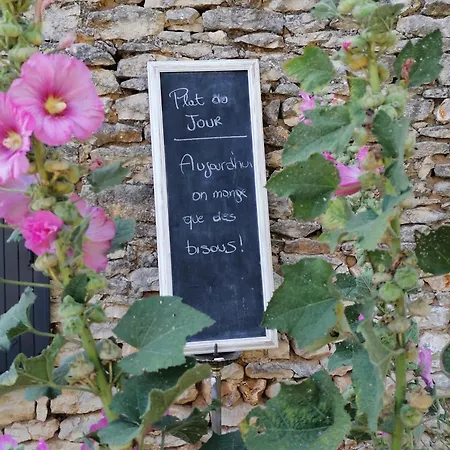 Plat du
JOUR
Aujourd'hui
on mange
que des
bisous!